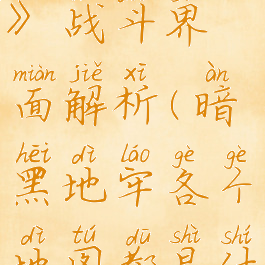 》战斗界
miàn jiě xī àn
面解析(暗
hēi dì láo gè gè
黑地牢各个
dì tú dū shì shí
地图都是什